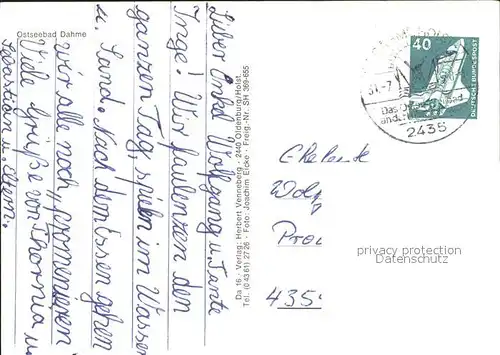 Ostseebad Dahme
Lieber Onkel Wolfgang u. Tante
Inge! Wir faulenzen den
ganzen Tag, spielen im Wasser
u. Sand. Nach dem Essen gehen
wir alle noch „promenieren"
Viele Grüße von Thornia u
Sebastian u. Eltern.
Da 16 · Verlag: Herbert Venneberg · 2440 Oldenburg/Holst.
Tel. (0 43 61) 27 26 · Foto: Joachim Eicke · Freig.-Nr. SH 369-655
40
DEUTSCHE BUNDESPOST
31.-7
Das
und
2435
Eheleute
Wolfg
435
privacy protection
Datenschutz